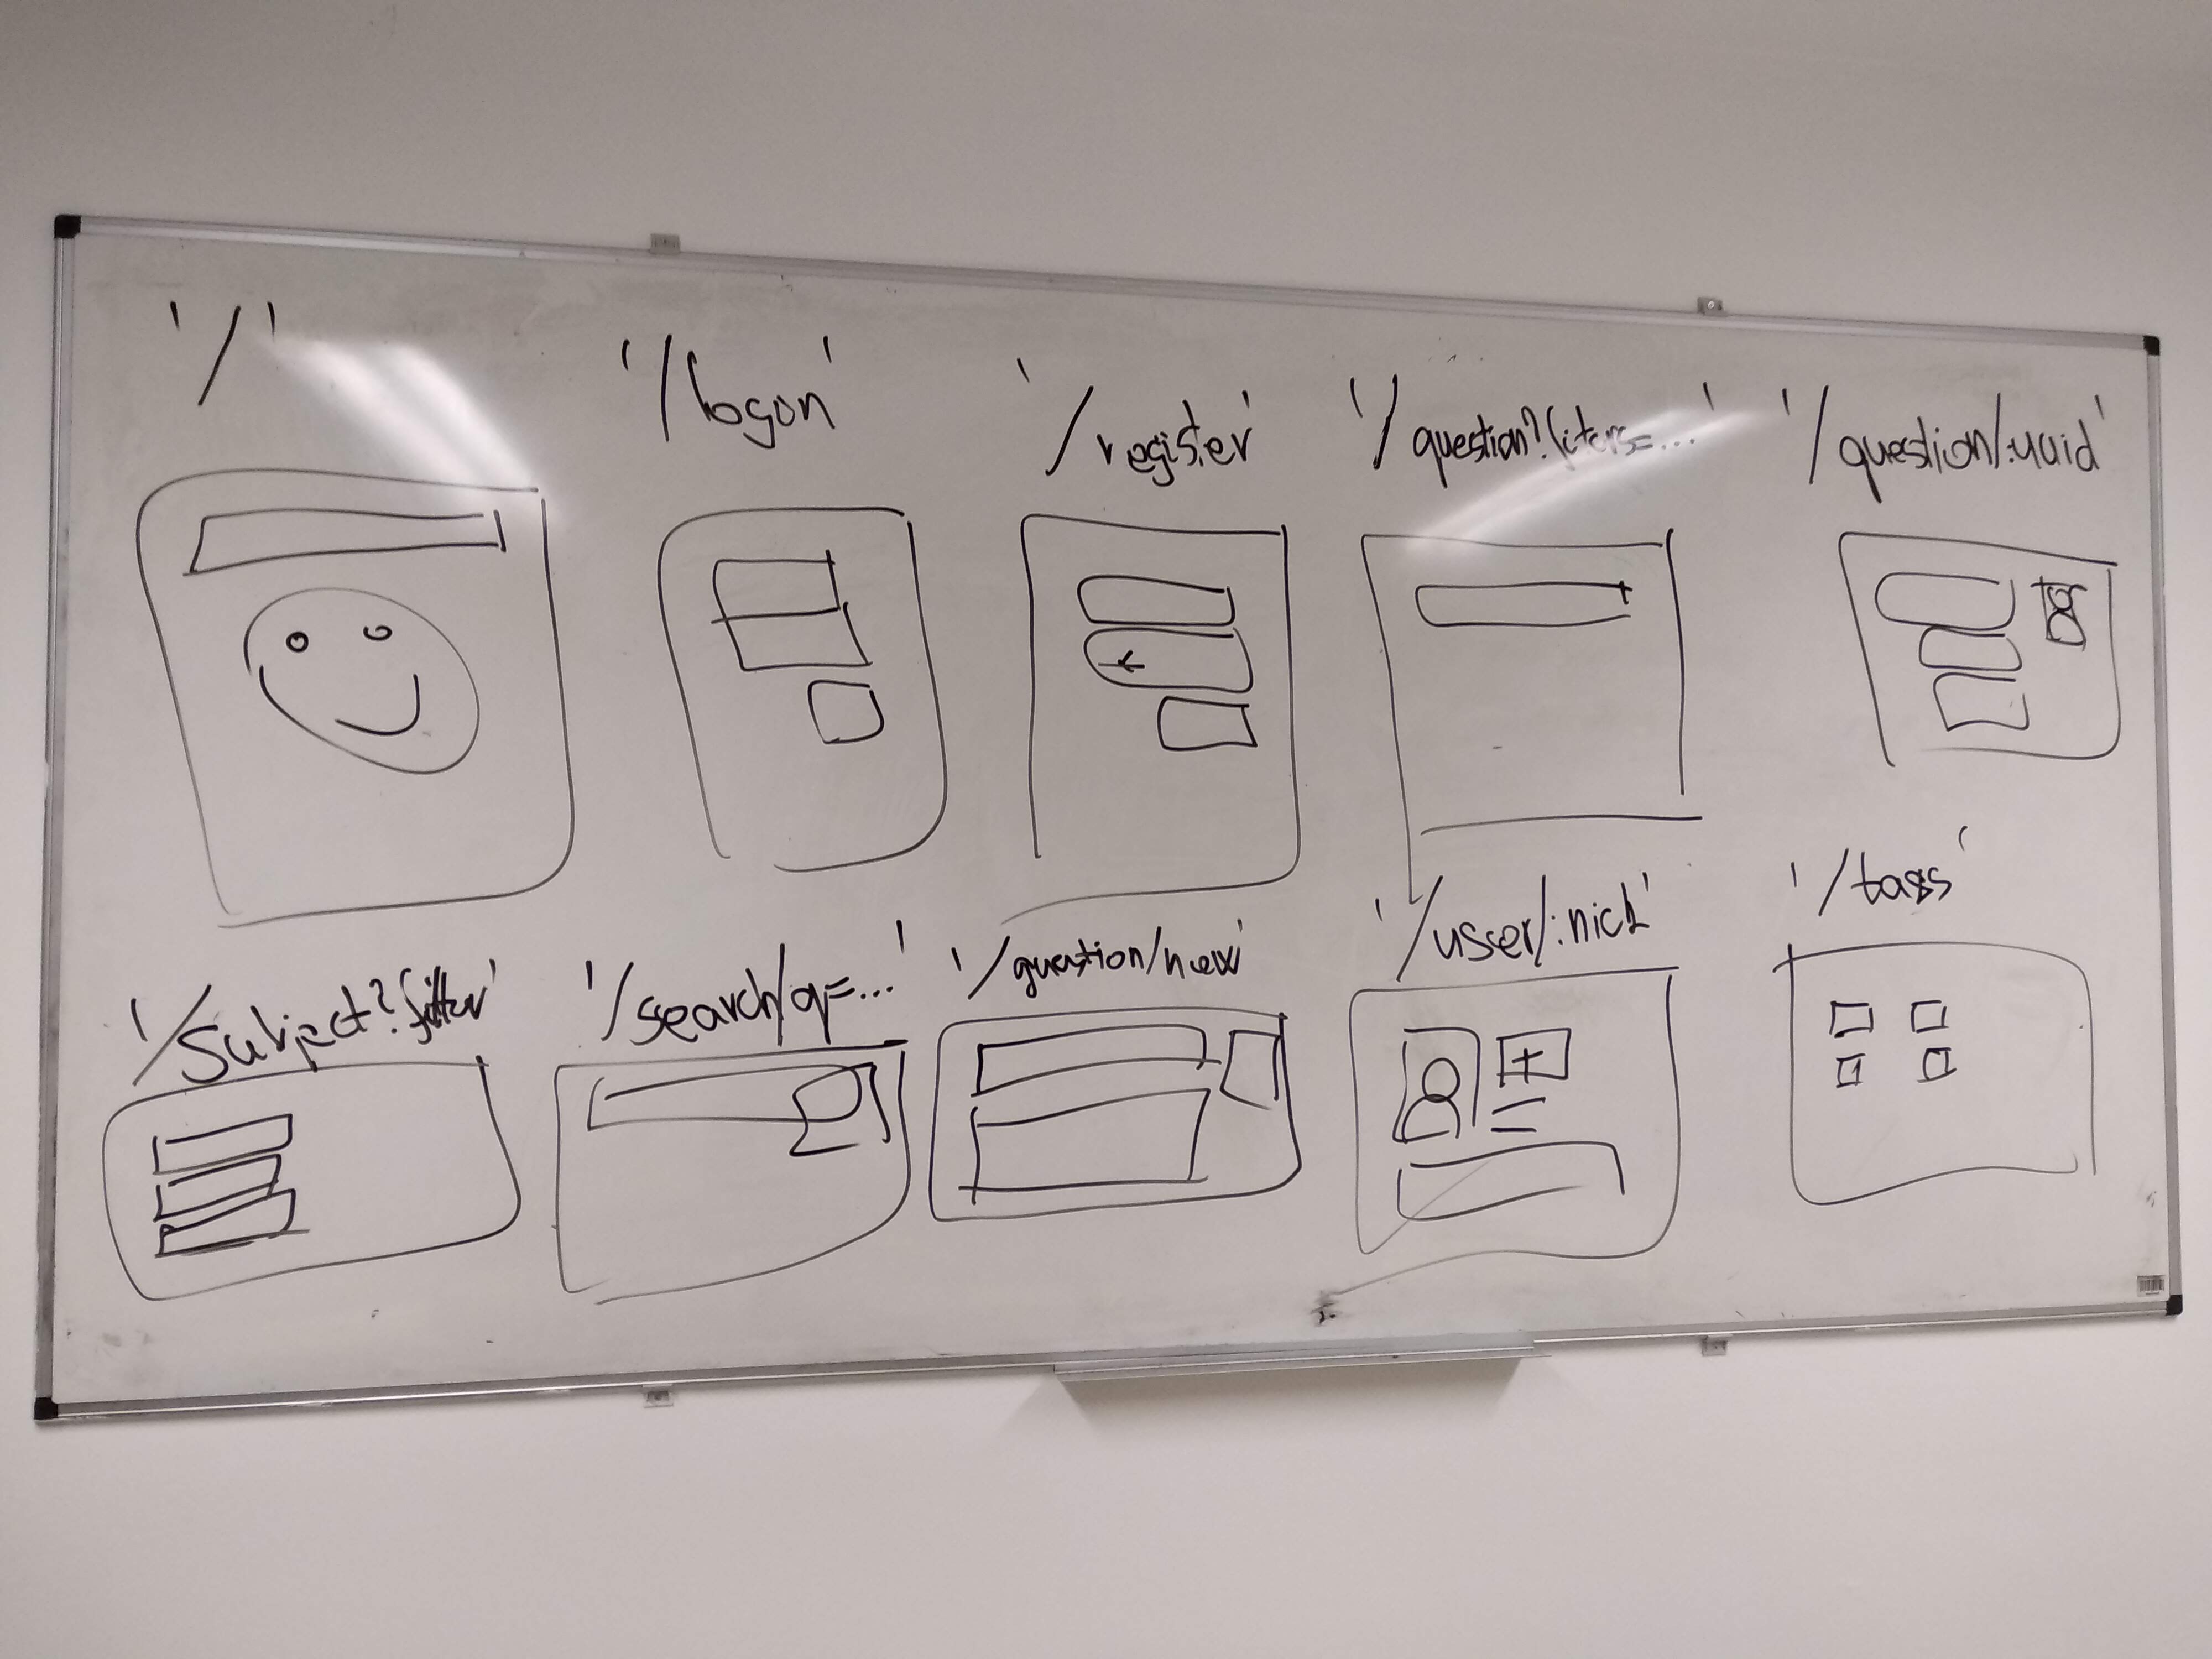 '/'
'/logon'
'/register'
'/question?fiters=...'
'/question/:uuid'
'/subject?filter'
'/search/q=...'
'/question/new'
'/usser/:nick'
'/tags'